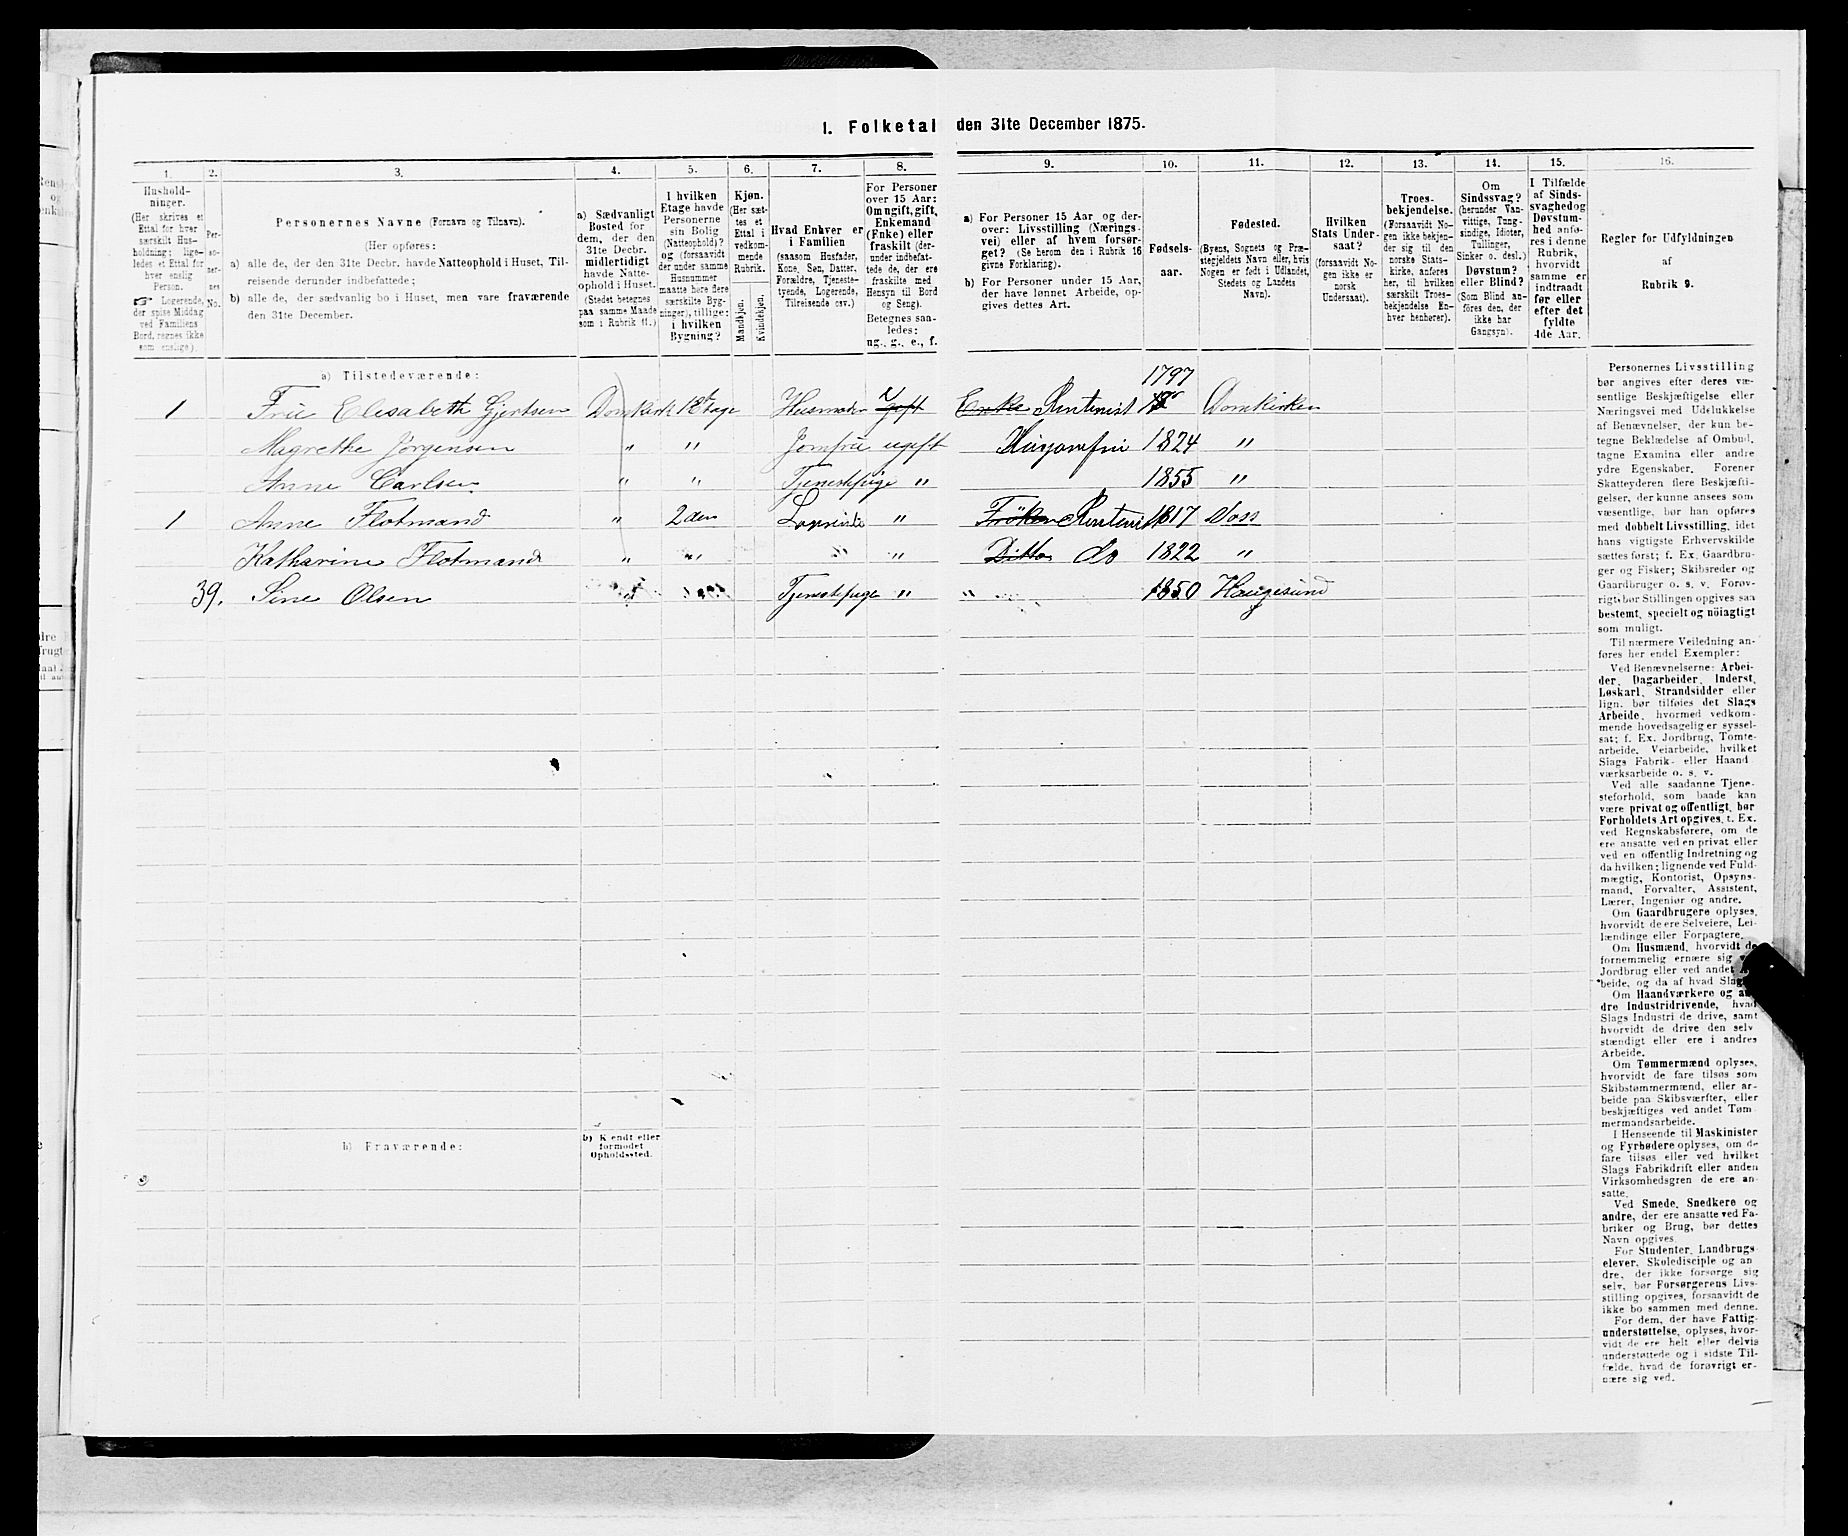 1. Folketal den 31te December 1875.
1. 2. 3. 4. 5. 6. 7. 8. 9. 10. 11. 12. 13. 14. 15. 16.
Husholdninger.
(Her skrives et
Ettal for hver
særskilt Husholdning;
ligeledes et Ettal for
hver enslig
Person.
Logerende,
der spise Middag
ved Familiens
Bord, regnes ikke
som enslige).
Personernes No.
Personernes Navne (Fornavn og Tilnavn).
(Her opføres:
a) alle de, der den 31te Decbr. havde Natteophold i Huset, Tilreisende derunder indbefattede;
b) alle de, der sædvanlig bo i Huset, men vare fraværende
den 31te December.
a) Sædvanligt
Bosted for
dem, der den
31te Decbr.
midlertidigt
havde Natteophold i Huset.
(Stedet betegnes
paa samme Maade
som i Rubrik 11.)
I hvilken
Etage havde
Personerne
sin Bolig
(Natteophold)?
og (forsaavidt
der under samme
Husnummer
maatte høre flere
særskilte Bygninger), tillige:
i hvilken
Bygning?
Kjøn.
(Her sættes et
Ettal i
vedkommende
Rubrik.
Mandkjøn.
Kvindekjøn.
Hvad Enhver er
i Familien
(saasom Husfader,
Kone, Søn, Datter,
Forældre, Tjenestetyende, Logerende,
Tilreisende osv.)
For Personer
over 15 Aar:
Om ugift, gift,
Enkemand
(Enke) eller
fraskilt (derunder indbefattede de, der ere
fraskilte med
Hensyn til Bord
og Seng).
Betegnes saaledes:
ug., g., e., f.
a) For Personer 15 Aar og derover: Livsstilling (Næringsvei) eller af hvem forsørget? (Se herom den i Rubrik 16
givne Forklaring).
b) For Personer under 15 Aar,
der have lønnet Arbeide, opgives dettes Art.
Fødselsaar.
Fødested.
(Byens, Sognets og Præstegjeldets Navn eller, hvis
Nogen er født i Udlandet,
Stedets og Landets
Navn).
Hvilken
Stats Undersaat?
(forsaavidt Nogen ikke er
norsk
Undersaat).
Troesbekjendelse.
(Forsaavidt Nogen ikke bekjender sig til den
norske Statskirke, anføres
her, til hvilken
særskilt Troesbekjendelse Enhver henhører).
Om
Sindssvag?
(herunder Vanvittige, Tungsindige, Idioter,
Tullinger,
Sinker o. desl.)
Døvstum?
eller Blind?
(Som Blind anføres den, der
ikke har
Gangsyn).
I Tilfælde
af Sindssvaghed og
Døvstumhed anføres i denne
Rubrik,
hvorvidt
samme er
indtraadt
før eller
efter det
fyldte
4de Aar.
Regler for Udfyldningen
af
Rubrik 9.
a) Tilstedeværende:
1797
1 Frue Elisabeth Gjertsen Domkirk 1ste Etage Husmoder Gift Enke Rentenist Domkirken
Magrethe Jørgensen " " Jomfru ugift Husjomfru 1824 "
Anne Carlsen " " Tjenestpige " 1855 "
1 Anne Flotmand " 2den " Frøken Rentenist 1817 Voss
Katharine Flotmand " " " " Ditto do 1822 "
39. Sine Olsen Tjenestpige " " 1850 Haugesund
b) Fraværende:
b) Kjendt eller
formodet
Opholdssted.
Personernes Livsstilling
bør angives efter deres væsentlige Beskjæftigelse eller
Næringsvei med Udelukkelse
af Benævnelser, der kun betegne Beklædelse af Ombud,
tagne Examina eller andre
ydre Egenskaber. Forener
Skatteyderen flere Beskjæftigelser, der kunne ansees som
væsentlige, bør han opføres
med dobbelt Livsstilling, idet
hans vigtigste Erhvervskilde
sættes først; f. Ex. Gaardbruger og Fisker; Skibsreder og
Gaardbruger o. s. v. Forøvrigt bør Stillingen opgives saa
bestemt, specielt og nöiagtigt
som muligt.
Til nærmere Veiledning anføres her endel Exempler:
Ved Benævnelserne: Arbeider, Dagarbeider, Inderst,
Løskarl, Strandsidder eller
lign. bør tilføies det Slags
Arbeide, hvormed vedkommende hovedsagelig er sysselsat; f. Ex. Jordbrug, Tomtearbeide, Veiarbeide, hvilket
Slags Fabrik- eller Haandværksarbeide o. s. v.
Ved alle saadanne Tjenesteforhold, som baade kan
være privat og offentligt, bør
Forholdets Art opgives, t. Ex.
ved Regnskabsførere, om de
ere ansatte ved en privat eller
ved en offentlig Indretning og
da hvilken; lignende ved Fuldmægtig, Kontorist, Opsynsmand, Forvalter, Assistent,
Lærer, Ingeniør og andre.
Om Gaardbrugere oplyses,
hvorvidt de ere Selveiere, Leilændinge eller Forpagtere.
Om Husmænd, hvorvidt de
fornemmelig ernære sig
Jordbrug eller ved andet
beide, og da af hvad
Om Haandværkere og andre Industridrivende, hvad
Slags Industri de drive, samt
hvorvidt de drive den selvstændigt eller ere i andres
Arbeide.
Om Tømmermænd oplyses,
hvorvidt de fare tilsøs som
Skibstømmermænd, eller arbeide paa Skibsværfter, eller
beskjæftiges ved andet Tømmermandsarbeide.
I Henseende til Maskinister
og Fyrbødere oplyses, om de
fare tilsøs eller ved hvilket
Slags Fabrikdrift eller anden
Virksomhedsgren de ere ansatte.
Ved Smede, Snedkere og
andre, der ere ansatte ved Fabriker og Brug, bør dettes
Navn opgives.
For Studenter, Landbrugselever, Skoledisciple og andre, der ikke forsørge sig
selv, bør Forsørgerens Livsstilling opgives, forsaavidt de
ikke bo sammen med denne.
For dem, der have Fattigunderstøttelse, oplyses, hvorvidt de ere helt eller delvis
understøttede og i sidste Tilfælde, hvad de forøvrigt ernære sig ved.